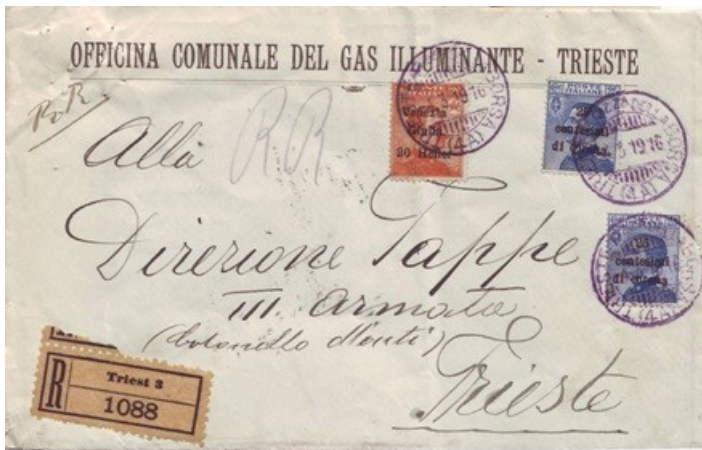 OFFICINA COMUNALE DEL GAS ILLUMINANTE - TRIESTE
R.R.
RR
Venezia
Giulia
20 Heller
25
centesimi
di corona
25
centesimi
di corona
Alla
Direzione Tappe
III. Armata
(Colonello Monti)
Trieste
R
Triest 3
1088